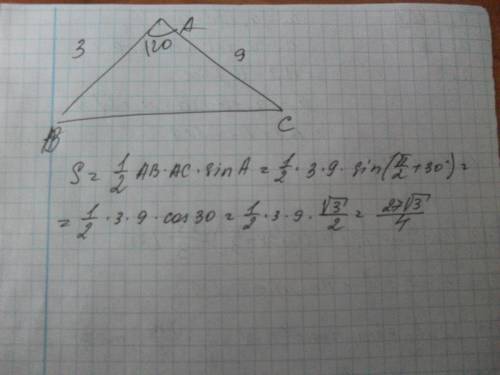 3
120
A
9
B
C
S = 1/2 AB · AC · sin A = 1/2 · 3 · 9 · sin(π/2 + 30°) =
= 1/2 · 3 · 9 · cos 30 = 1/2 · 3 · 9 · √3/2 = 27√3/4